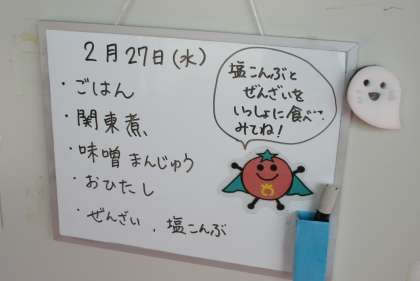 2月27日(水)
・ごはん
・関東煮
・味噌まんじゅう
・おひたし
・ぜんざい、塩こんぶ
塩こんぶと
ぜんざいを
いっしょに食べて
みてね!